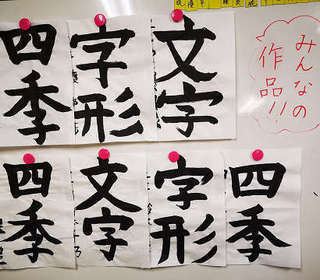 四季
字形
文字
みんなの
作品!!
四季
文字
字形
四季